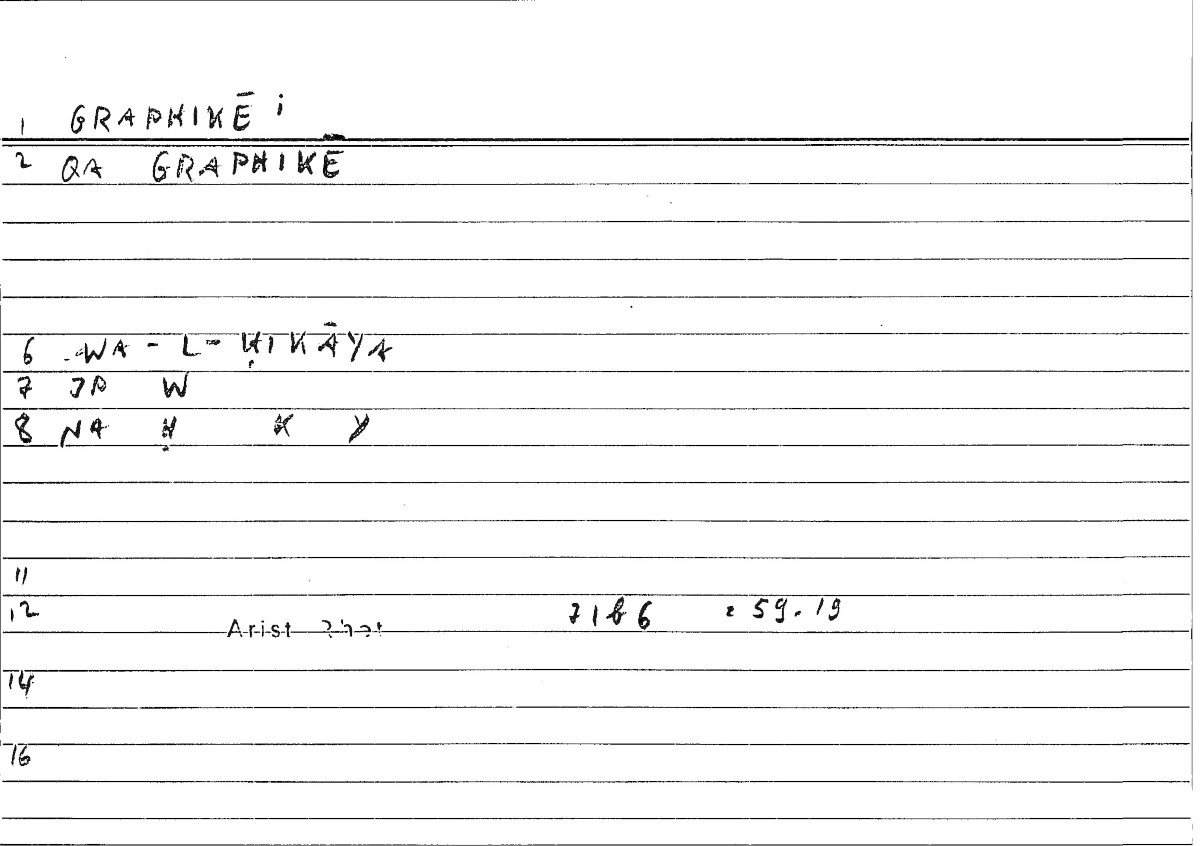 1 GRAPHIKĒ i
2 QA GRAPHIKĒ
6 WA - L - ḤIKĀYA
7 JP W
8 NA Ḥ K Y
11
12 Arist Rhet 71b6 : 59.19
14
16